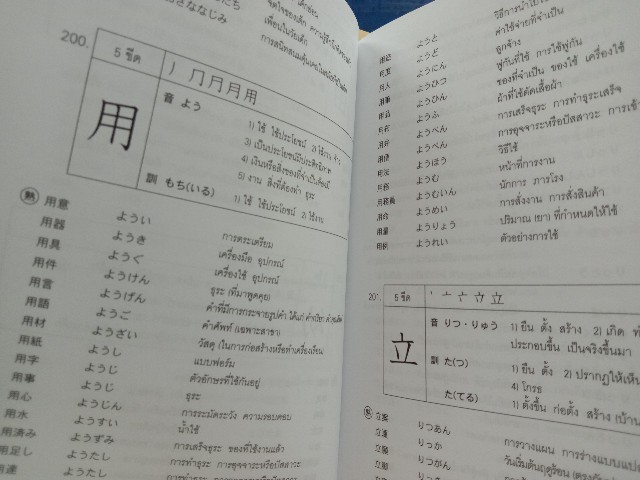 おさななじみ
เพื่อนในวัยเด็ก
200.
5 ขีด
用
音 よう
1) ใช้ ใช้ประโยชน์ 2) ใช้งาน
5) งาน สิ่งที่ต้องทำ ธุระ
訓 もち(いる)
1) ใช้ ใช้ประโยชน์ 2) ใช้งาน
熟 用意 ようい การตระเตรียม
用器 ようき เครื่องมือ อุปกรณ์
用具 ようぐ เครื่องใช้ อุปกรณ์
用件 ようけん ธุระ (ที่มาพูดคุย)
用言 ようげん คำที่มีการกระจายรูปคำ ได้แก่
用語 ようご คำศัพท์ (เฉพาะสาขา)
用材 ようざい วัสดุ (ในการก่อสร้างหรือทำเครื่องเรือน)
用紙 ようし แบบฟอร์ม
用字 ようじ ตัวอักษรที่ใช้กันอยู่
用事 ようじ ธุระ
用心 ようじん การระมัดระวัง ความรอบคอบ
用水 ようすい น้ำใช้
用済み ようずみ การเสร็จธุระ ของที่ใช้งานแล้ว
用足し ようたし การทำธุระ การอุจจาระหรือปัสสาวะ
用達 ようたし การทำธุระ
ようと วิธีการนำไป
ようど ค่าใช้จ่ายที่จำเป็น
ようにん ลูกจ้าง
ようひつ พู่กันที่ใช้ การใช้พู่กัน
ようひん ของที่จำเป็น ของใช้ เครื่องใช้
ようふ ผ้าที่ใช้ตัดเสื้อผ้า
ようべん การเสร็จธุระ การทำธุระเสร็จ
ようべん การอุจจาระหรือปัสสาวะ การเข้า
ようほう วิธีใช้
ようむ หน้าที่การงาน
用務員 ようむいん นักการ ภารโรง
用命 ようめい การสั่งงาน การสั่งสินค้า
用量 ようりょう ปริมาณ (ยา) ที่กำหนดให้ใช้
用例 ようれい ตัวอย่างการใช้
201.
5 ขีด
立
音 りつ・りゅう 1) ยืน ตั้ง สร้าง 2) เกิด
ประกอบขึ้น เป็นจริงขึ้นมา
訓 た(つ) 1) ยืน ตั้ง 2) ปรากฏให้เห็น
4) โกรธ
た(てる) 1) ตั้งขึ้น ก่อตั้ง สร้าง (บ้าน
熟 立案 りつあん การวางแผน การร่างแบบแปลน
立夏 りっか วันเริ่มต้นฤดูร้อน
立願 りつがん